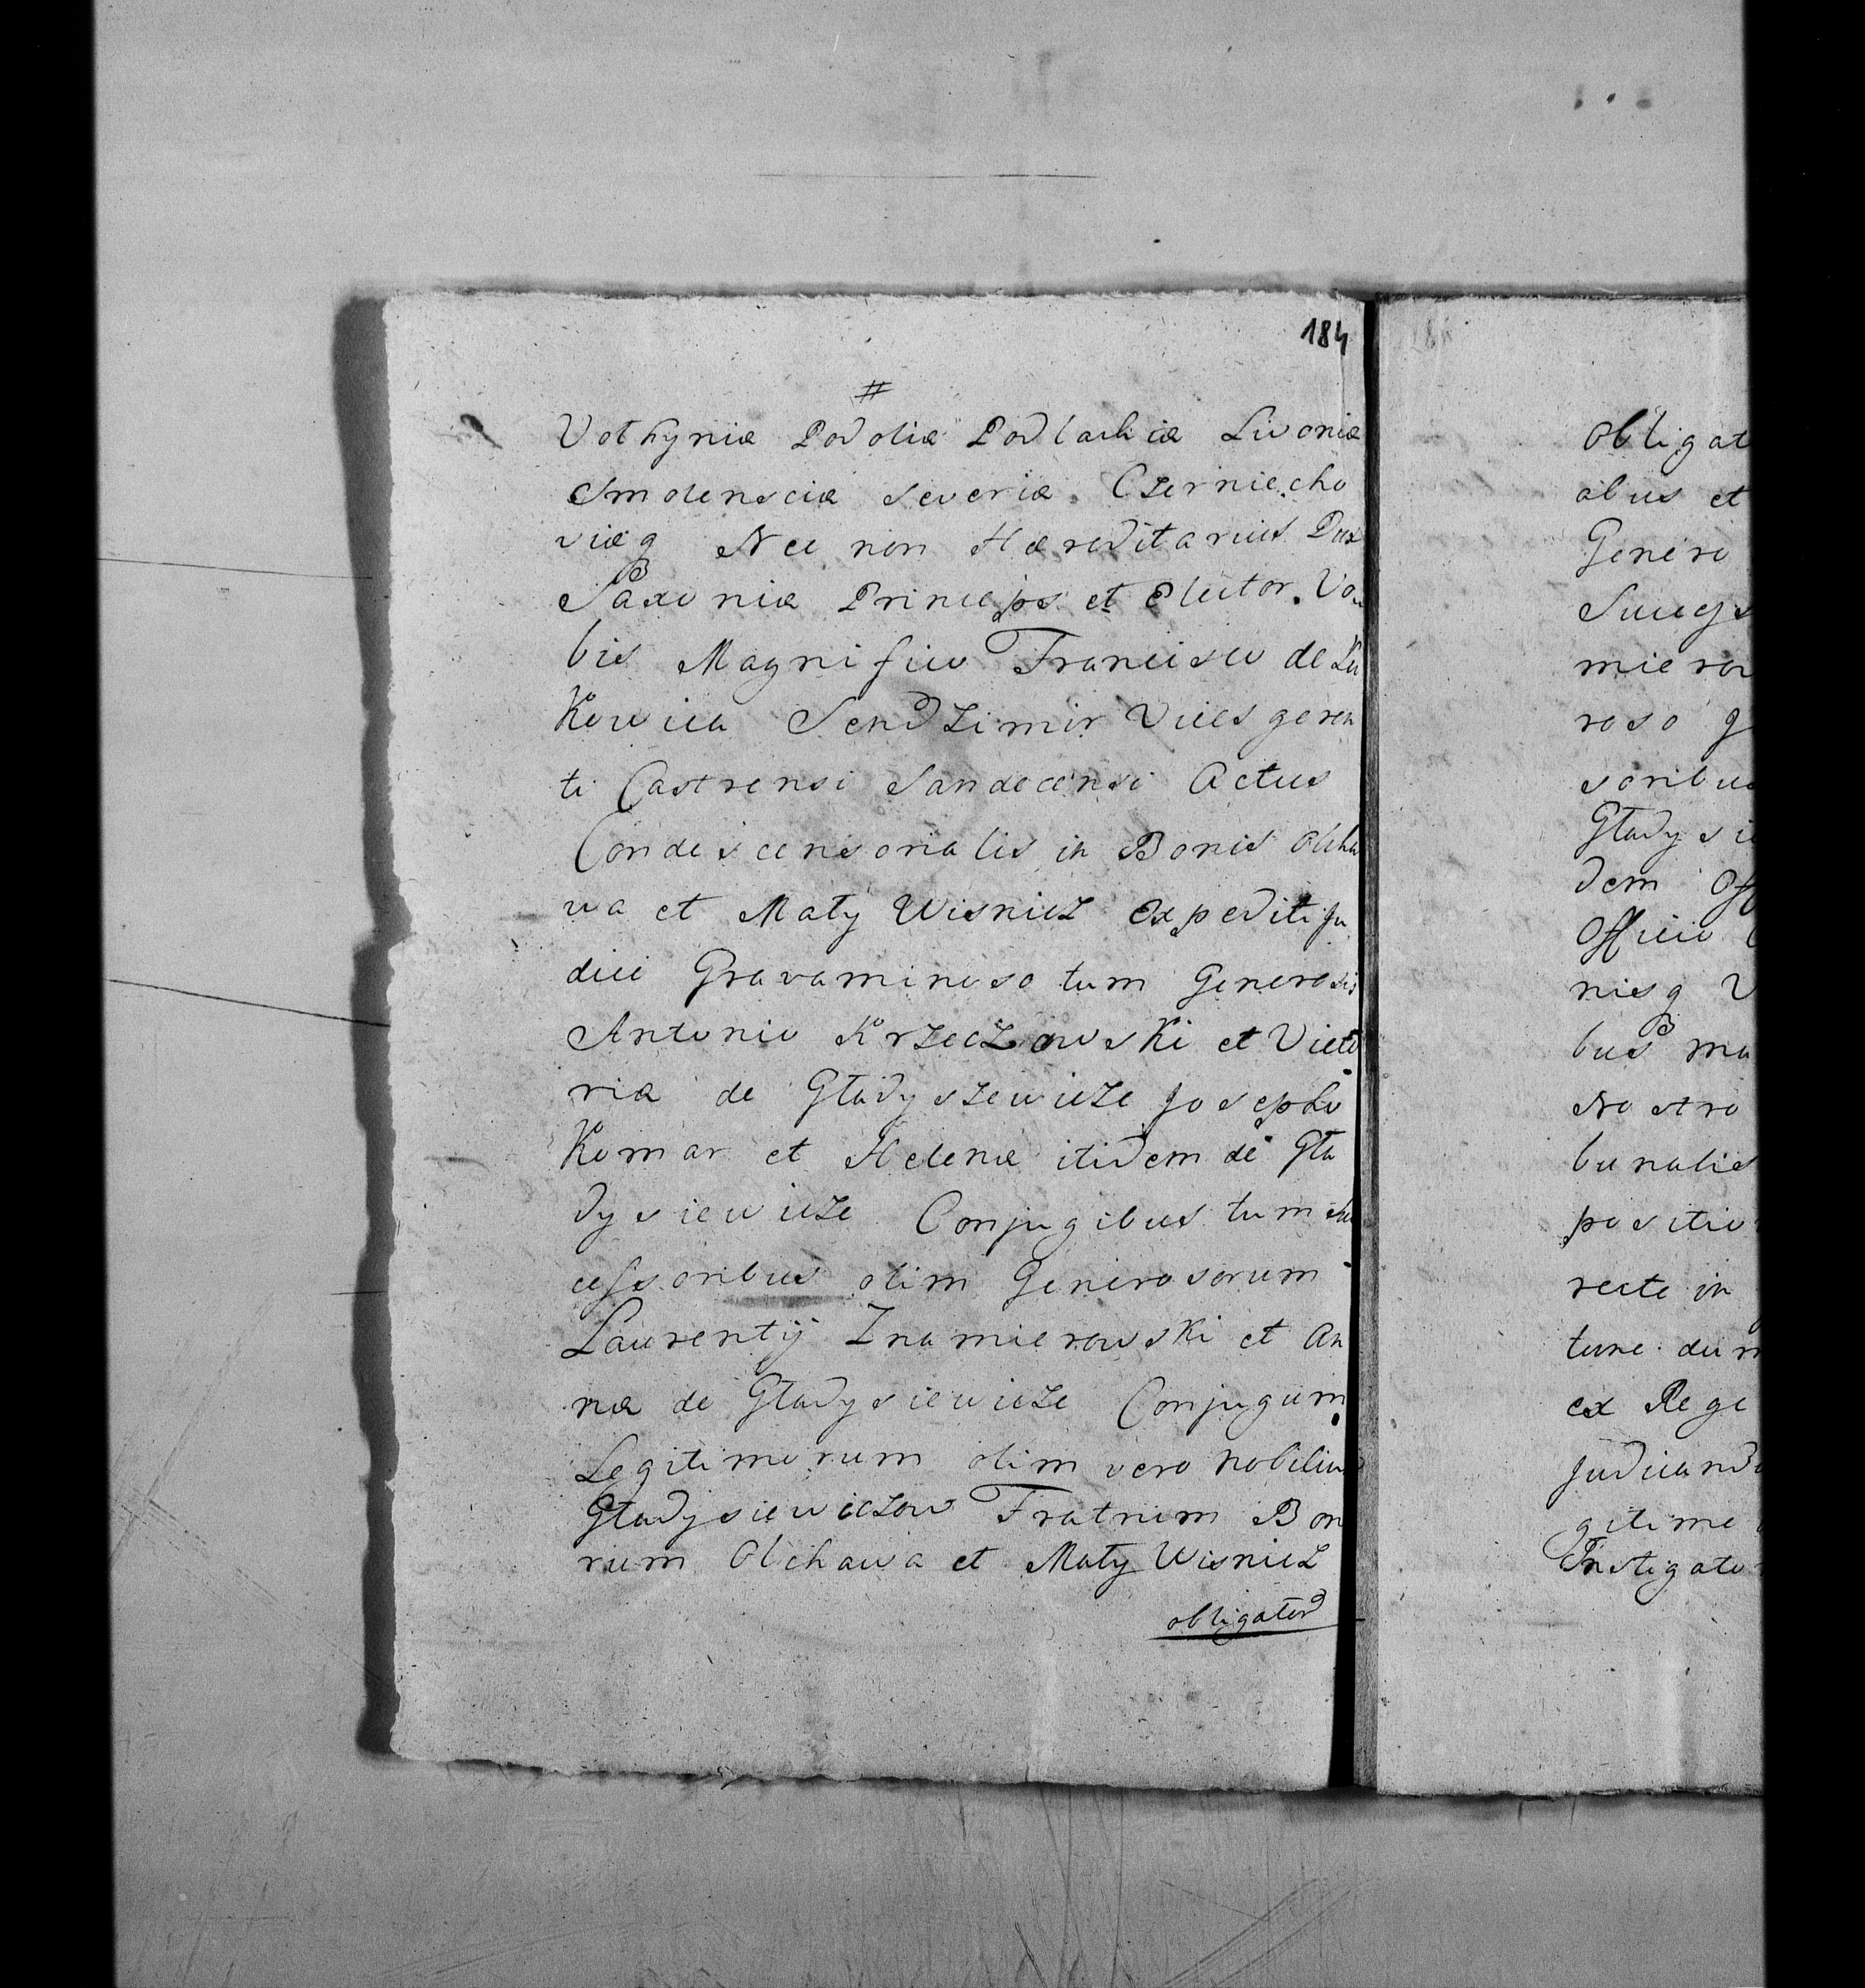 184
#
Volhyniæ Podoliæ Podlachiæ Livoniæ
Smolensciæ Severiæ Czerniecho
viæq Nec non Hæreditarius Dux
Saxoniæ Princeps et Elector. Vo
bis Magnifico Francisco de Lu
Kowica SendZimir Vices geren
ti Castrensi Sandecensi Actus
Condescensorialis in Bonis Olcha
wa et Mały WisnicZ Expediti Ju
dici Gravaminoso tum Generosis
Antonio KrzeczowsKi et Victo
riæ de Gładyszewicze Josepho
Komar et Helenæ itidem de Gła
dysiewicze Conjugibus tum Suc
cessoribus olim Generosorum
Laurentÿ ZnamierowsKi et An
næ de Gładysiewicze Conjugum
Legitimorum olim vero Nobilium
Gładysiewiczow Fratrum Bon
rum Olchawa et Mały Wisnicz
obligator
Obligat
abus et
Genero
Success
mierow
roso
soribus
Gładysie
dem Off
Officio
nisq
bus ma
Nostro
bunalis
positio
recte in
tunc dum
ex Rege
Judicand
gitime
Instigato